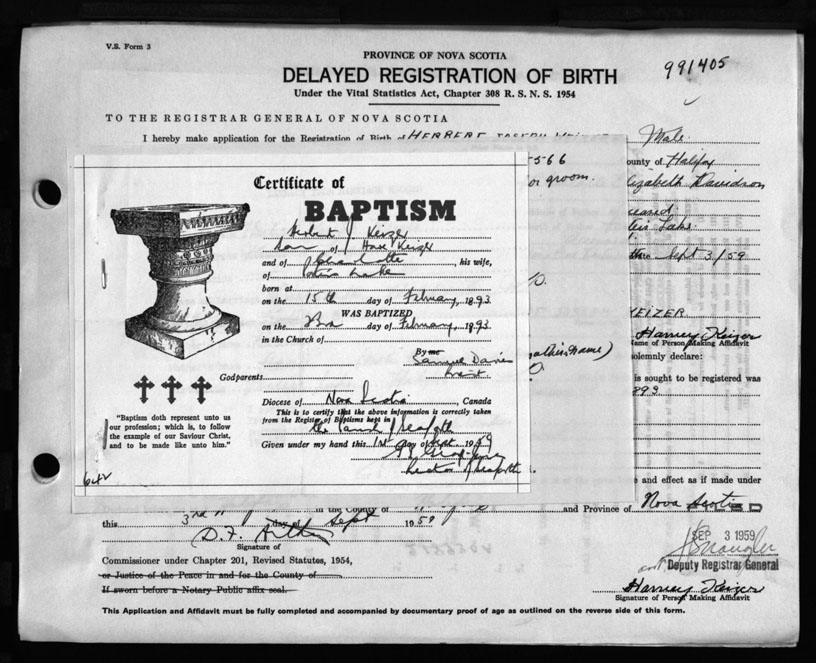 V.S. Form 3
PROVINCE OF NOVA SCOTIA
991405
DELAYED REGISTRATION OF BIRTH
Under the Vital Statistics Act, Chapter 308 R. S. N. S. 1954
TO THE REGISTRAR GENERAL OF NOVA SCOTIA
I hereby make application for the Registration of Birth of HERBERT JOSEPH Male
566
ounty of Halifax
or groom.
lizabeth Davidson
Lake
Sept 3/59
EIZER
Harvey Keizer
ame of Person Making Affidavit
olemnly declare:
is sought to be registered was
893
Certificate of
BAPTISM
Herbert J. Keizer
Son of Keizer
and of Charlotte, his wife,
of Lake
born at
on the 15th day of February, 1893
WAS BAPTIZED
on the day of February, 1893
in the Church of
By me
Samuel Davies
Godparents
Diocese of Nova Scotia, Canada
This is to certify that the above information is correctly taken
from the Register of Baptisms kept in
the Parish Seaforth
Given under my hand this 1st day of Sept 1959
Rector of Seaforth
"Baptism doth represent unto us
our profession; which is, to follow
the example of our Saviour Christ,
and to be made like unto him."
and effect as if made under
in the County of and Province of Nova Scotia
this 3rd day of Sept 1959
SEP 3 1959
D. F.
Signature of
Deputy Registrar General
Commissioner under Chapter 201, Revised Statutes, 1954,
or Justice of the Peace in and for the County of
If sworn before a Notary Public affix seal.
Harvey Keizer
Signature of Person Making Affidavit
This Application and Affidavit must be fully completed and accompanied by documentary proof of age as outlined on the reverse side of this form.